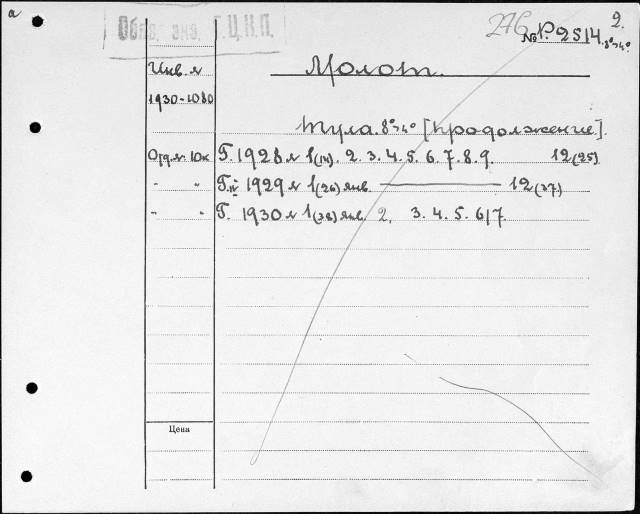 a
2.
276 № P. 2514. 8°>4°
Г.Ц.К.П.
Инв. №
Молот.
1930-1080
Тула. 8°>4° [продолжение].
Г. 1928 № 1(14). 2. 3. 4. 5. 6. 7. 8. 9. 12(25)
" " Г. IV 1929 № 1(26) янв. — 12(37)
" " Г. 1930 № 1(38) янв. 2. 3. 4. 5. 6/7.
Цена